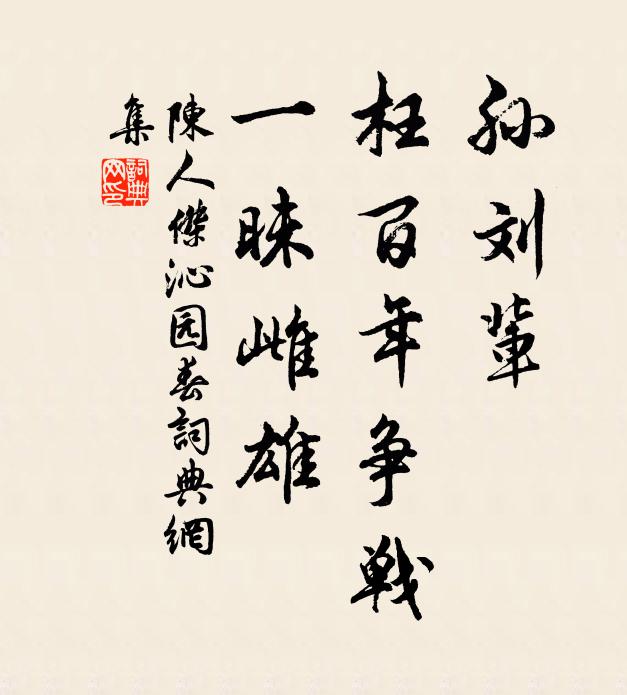 孙刘辈
枉百年争戦
一睐雌雄
陳人傑沁园春詞典網
集
詞典
网印